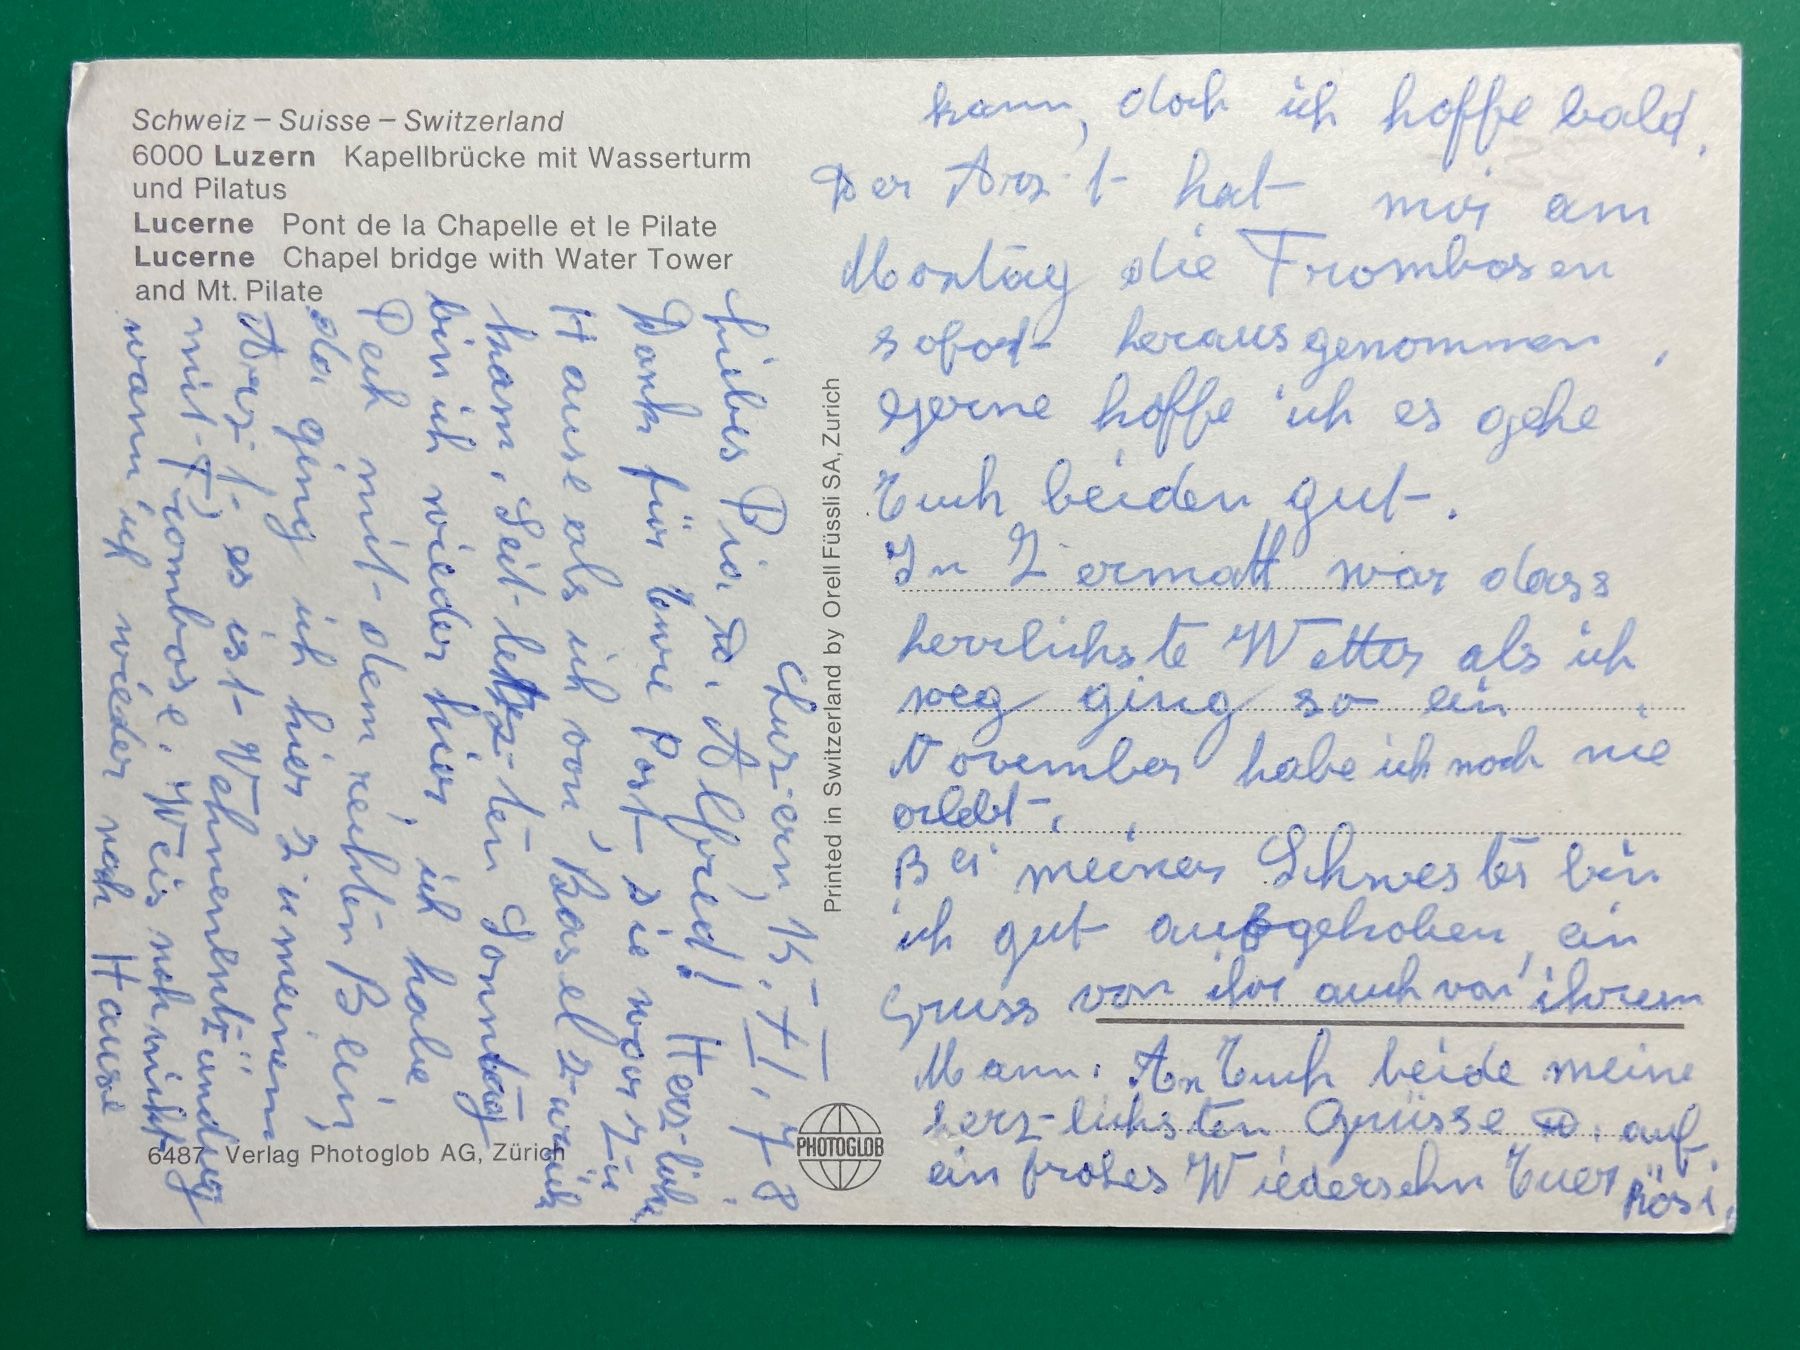 Schweiz – Suisse – Switzerland
6000 Luzern Kapellbrücke mit Wasserturm
und Pilatus
Lucerne Pont de la Chapelle et le Pilate
Lucerne Chapel bridge with Water Tower
and Mt. Pilate
Luzern, 15. XI. 78
Liebes Pia u. Alfred! Herzliche
Dank für Eure Post sie war zu
Hause als ich von Basel zurück
kam. Seit letzten Sonntag
bin ich wieder hier, ich habe
Pech mit dem rechten Bein,
da ging ich hier zu meinem
Arzt es ist Vehnenentzündung
mit Trombose. Weis noch nicht
wann ich wieder nach Hause
6487 Verlag Photoglob AG, Zürich
Printed in Switzerland by Orell Füssli SA, Zürich
PHOTOGLOB
kann, doch ich hoffe bald.
Der Arzt hat mir am
Montag die Trombosen
sofort herausgenommen,
gerne hoffe ich es gehe
Euch beiden gut.
In Zermatt war dass
herrlichste Wetter als ich
weg ging so ein
November habe ich noch nie
erlebt.
Bei meiner Schwester bin
ich gut aufgehoben, ein
Gruss von ihr auch von ihrem
Mann. An Euch beide meine
herzlichsten Grüsse u. auf
ein frohes Wiedersehn Euer Rösi.